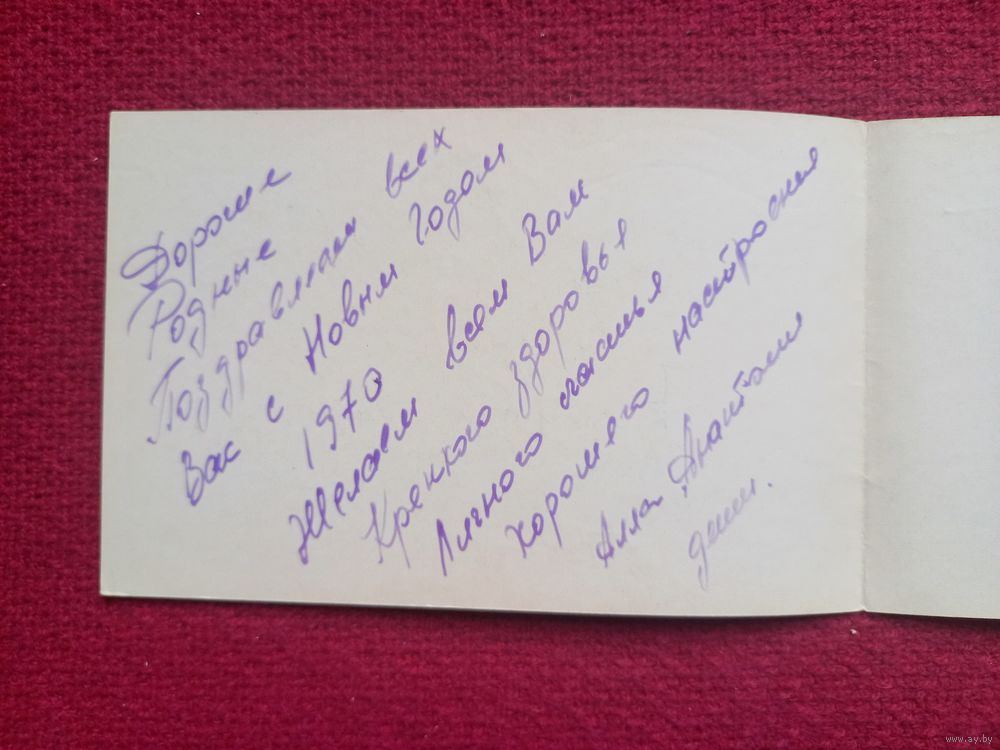 Дорогие
Родные
Поздравляем всех
Вас с Новым Годом
1970
Желаем всем Вам
Крепкого здоровья
Личного счастья
хорошего настроения
Алла, Анатолий
дети.
www.ay.by